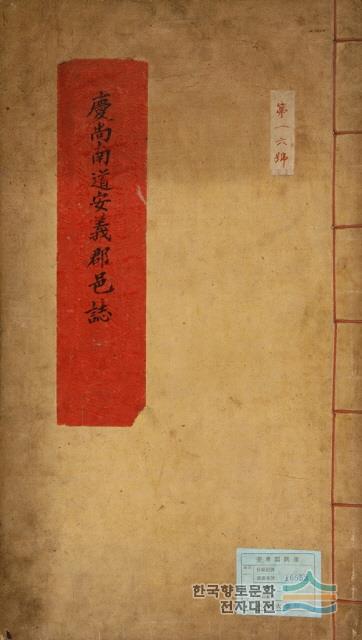 慶尙南道安義郡邑誌
第一六號
한국향토문화
전자대전